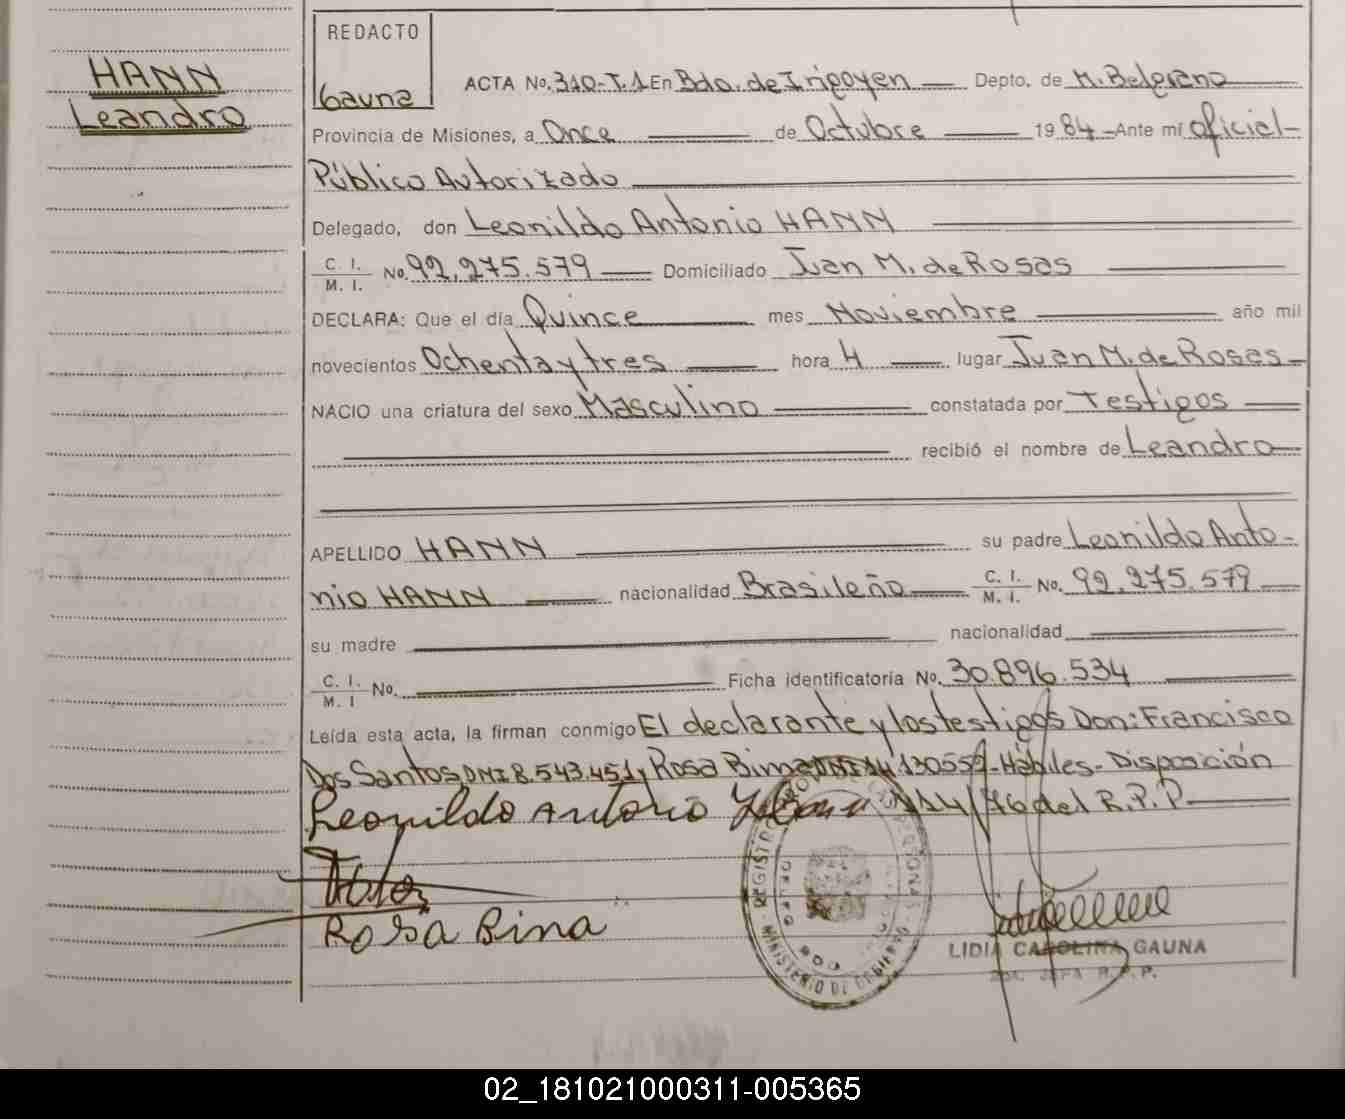 HANN
Leandro
REDACTO
Gauna
ACTA No. 310-T.1 En Bdo. de Irigoyen Depto. de M. Belgrano
Provincia de Misiones, a Once de Octubre 1984 Ante mí oficial-
Público Autorizado
Delegado, don Leonildo Antonio HANN
C. I.
M. I. No. 92.275.579 Domiciliado Juan M. de Rosas
DECLARA: Que el día Quince mes Noviembre año mil
novecientos Ochenta y tres hora 4 lugar Juan M. de Rosas
NACIO una criatura del sexo Masculino constatada por Testigos
recibió el nombre de Leandro
APELLIDO HANN su padre Leonildo Anto-
nio HANN nacionalidad Brasileño C. I. M. I. No. 92.275.579
su madre nacionalidad
C. I.
M. I No. Ficha identificatoria No. 30.896.534
Leída esta acta, la firman conmigo El declarante y los testigos Don: Francisco
Dos Santos DNI 8.543.451 y Rosa Bina 130559 - Hábiles - Disposición
del R.P.P
Leonildo Antonio
Rosa Bina
MINISTERIO DE GOBIERNO
LIDIA CAROLINA GAUNA
JEFA R.P.P.
02_181021000311-005365